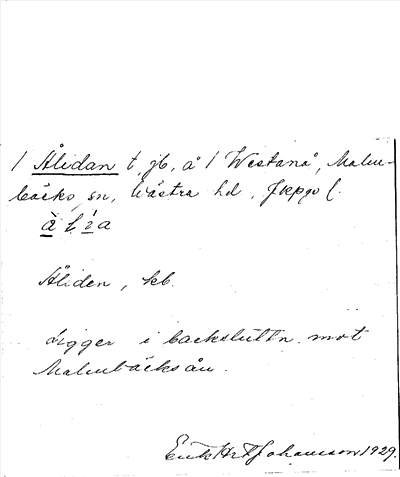 1 Ålidan t, jb, å 1 Westanå, Malm-
bäcks sn, Västra hd, Jkpgs l.
à l ì a
Åliden, kb.
Ligger i backsluttn. mot
Malmbäcksån.
Erik Johansson 1929.